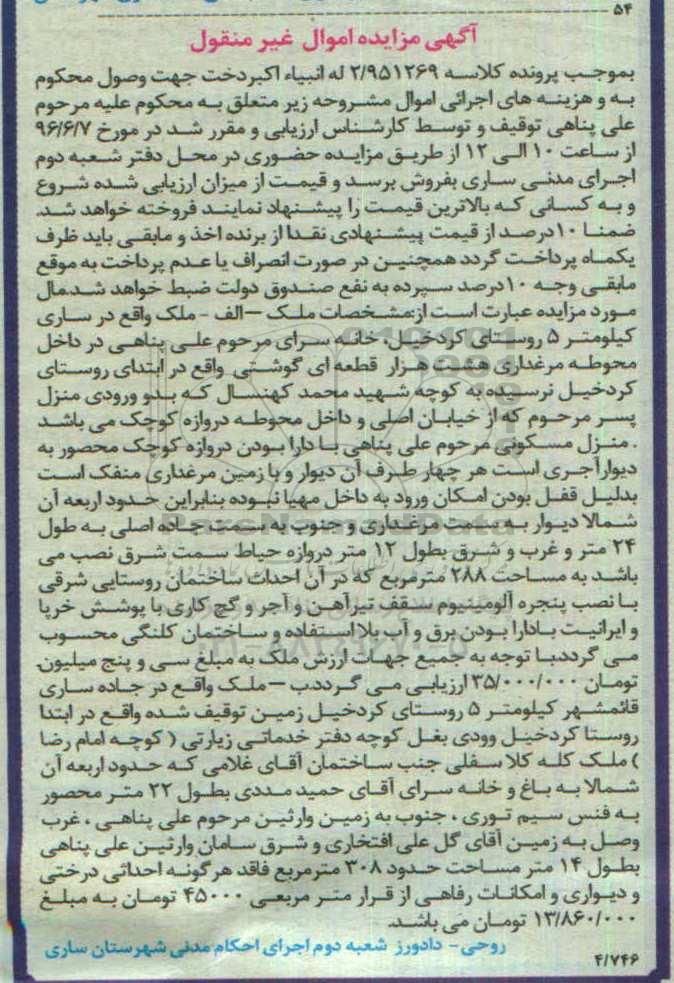 ۵۴
آگهی مزایده اموال غیر منقول
بموجب پرونده کلاسه ۲/۹۵۱۲۶۹ له انبیاء اکبردخت جهت وصول محکوم
به و هزینه های اجرائی اموال مشروحه زیر متعلق به محکوم علیه مرحوم
علی پناهی توقیف و توسط کارشناس ارزیابی و مقرر شد در مورخ ۹۶/۶/۷
از ساعت ۱۰ الی ۱۲ از طریق مزایده حضوری در محل دفتر شعبه دوم
اجرای مدنی ساری بفروش برسد و قیمت از میزان ارزیابی شده شروع
و به کسانی که بالاترین قیمت را پیشنهاد نمایند فروخته خواهد شد.
ضمنا ۱۰درصد از قیمت پیشنهادی نقدا از برنده اخذ و مابقی باید ظرف
یکماه پرداخت گردد همچنین در صورت انصراف یا عدم پرداخت به موقع
مابقی وجه ۱۰درصد سپرده به نفع صندوق دولت ضبط خواهد شد.مال
مورد مزایده عبارت است از:مشخصات ملک –الف - ملک واقع در ساری
کیلومتر ۵ روستای کردخیل، خانه سرای مرحوم علی پناهی در داخل
محوطه مرغداری هفت هزار قطعه ای گوشتی واقع در ابتدای روستای
کردخیل نرسیده به کوچه شهید محمد کهنسال که بدو ورودی منزل
پسر مرحوم که از خیابان اصلی و داخل محوطه دروازه کوچک می باشد
. منزل مسکونی مرحوم علی پناهی با دارا بودن دروازه کوچک محصور به
دیوارآجری است هر چهار طرف آن دیوار و با زمین مرغداری منفک است
بدلیل قفل بودن امکان ورود به داخل مهیا نبوده بنابراین حدود اربعه آن
شمالا دیوار به سمت مرغداری و جنوب به سمت جاده اصلی به طول
۲۴ متر و غرب و شرق بطول ۱۲ متر دروازه حیاط سمت شرق نصب می
باشد به مساحت ۲۸۸ مترمربع که در آن احداث ساختمان روستایی شرقی
با نصب پنجره آلومینیوم سقف تیرآهن و آجر و گچ کاری با پوشش خرپا
و ایرانیت بادارا بودن برق و آب بلا استفاده و ساختمان کلنگی محسوب
می گردد.با توجه به جمیع جهات ارزش ملک به مبلغ سی و پنج میلیون
تومان ۳۵/۰۰۰/۰۰۰ ارزیابی می گردد.ب – ملک واقع در جاده ساری
قائمشهر کیلومتر ۵ روستای کردخیل زمین توقیف شده واقع در ابتدا
روستا کردخیل وودی بغل کوچه دفتر خدماتی زیارتی ( کوچه امام رضا
) ملک کله کلا سفلی جنب ساختمان آقای غلامی که حدود اربعه آن
شمالا به باغ و خانه سرای آقای حمید مددی بطول ۲۲ متر محصور
به فنس سیم توری ، جنوب به زمین وارثین مرحوم علی پناهی ، غرب
وصل به زمین آقای گل علی افتخاری و شرق سامان وارثین علی پناهی
بطول ۱۴ متر مساحت حدود ۳۰۸ مترمربع فاقد هرگونه احداثی درختی
و دیواری و امکانات رفاهی از قرار متر مربعی ۴۵۰۰۰ تومان به مبلغ
۱۳/۸۶۰/۰۰۰ تومان می باشد.
روحی- دادورز شعبه دوم اجرای احکام مدنی شهرستان ساری
۴/۷۴۶